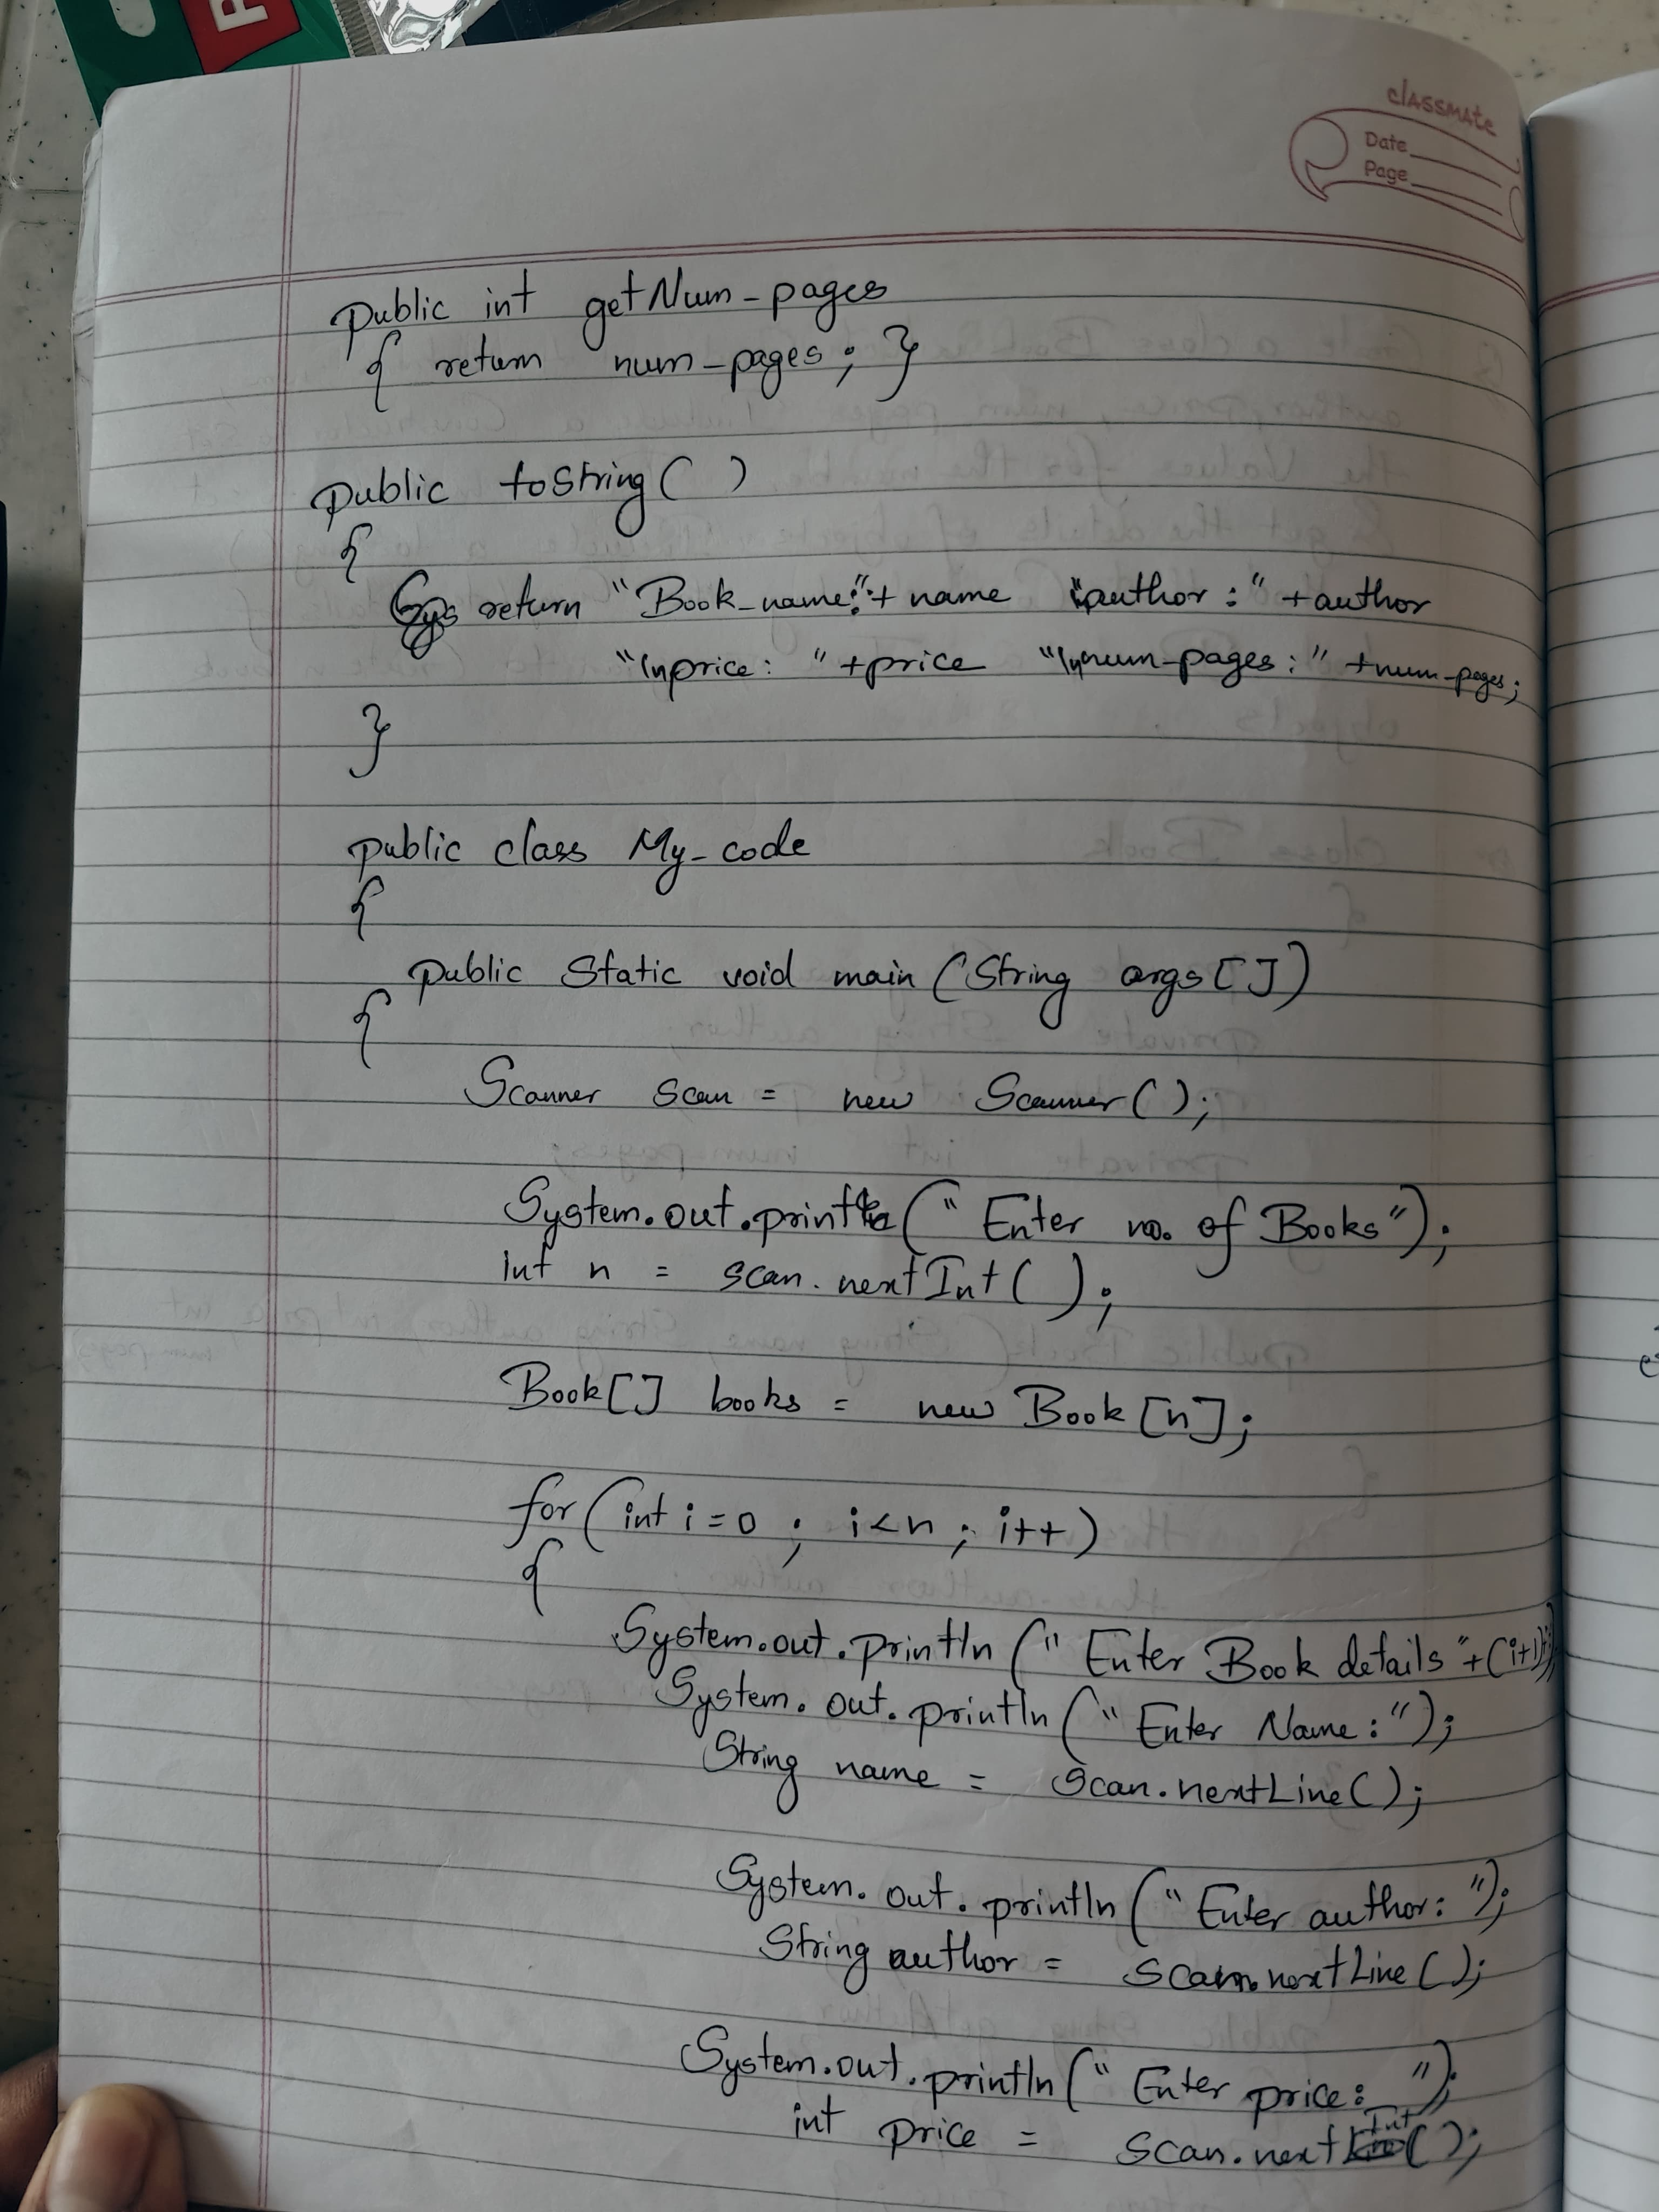 classmate
Date
Page
public int getNum_pages
{ return num_pages; }
public toString( )
{
return "Book_name:"+ name "author :" +author
"\nprice: " +price "\nnum_pages:" +num_pages;
}
public class My_code
{
public static void main (String args[])
{
Scanner scan = new Scanner( );
System.out.println(" Enter no. of Books");
int n = scan.nextInt( );
Book[] books = new Book[n];
for(int i=0 ; i<n ; i++)
{
System.out.println (" Enter Book details "+(i+1));
System. out. println (" Enter Name: ");
String name = scan.nextLine( );
System. out. println (" Enter author: ");
String author = scan.nextLine ( );
System.out.println(" Enter price: ");
int price = scan.nextInt( );